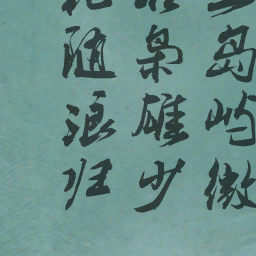 岛屿微
枭雄少
随浪归